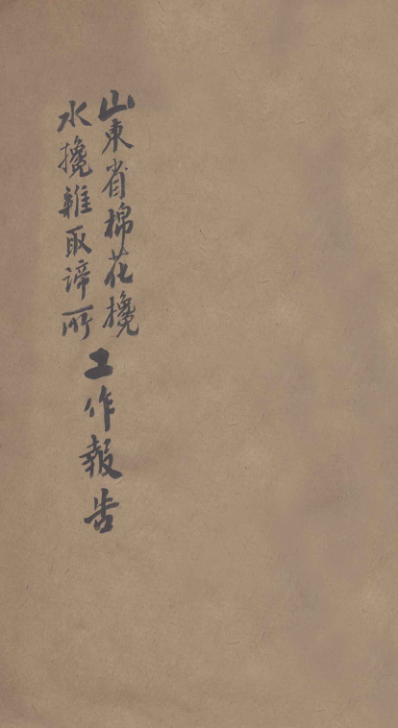 山東省棉花攙
水攙雜取諦所
工作報告